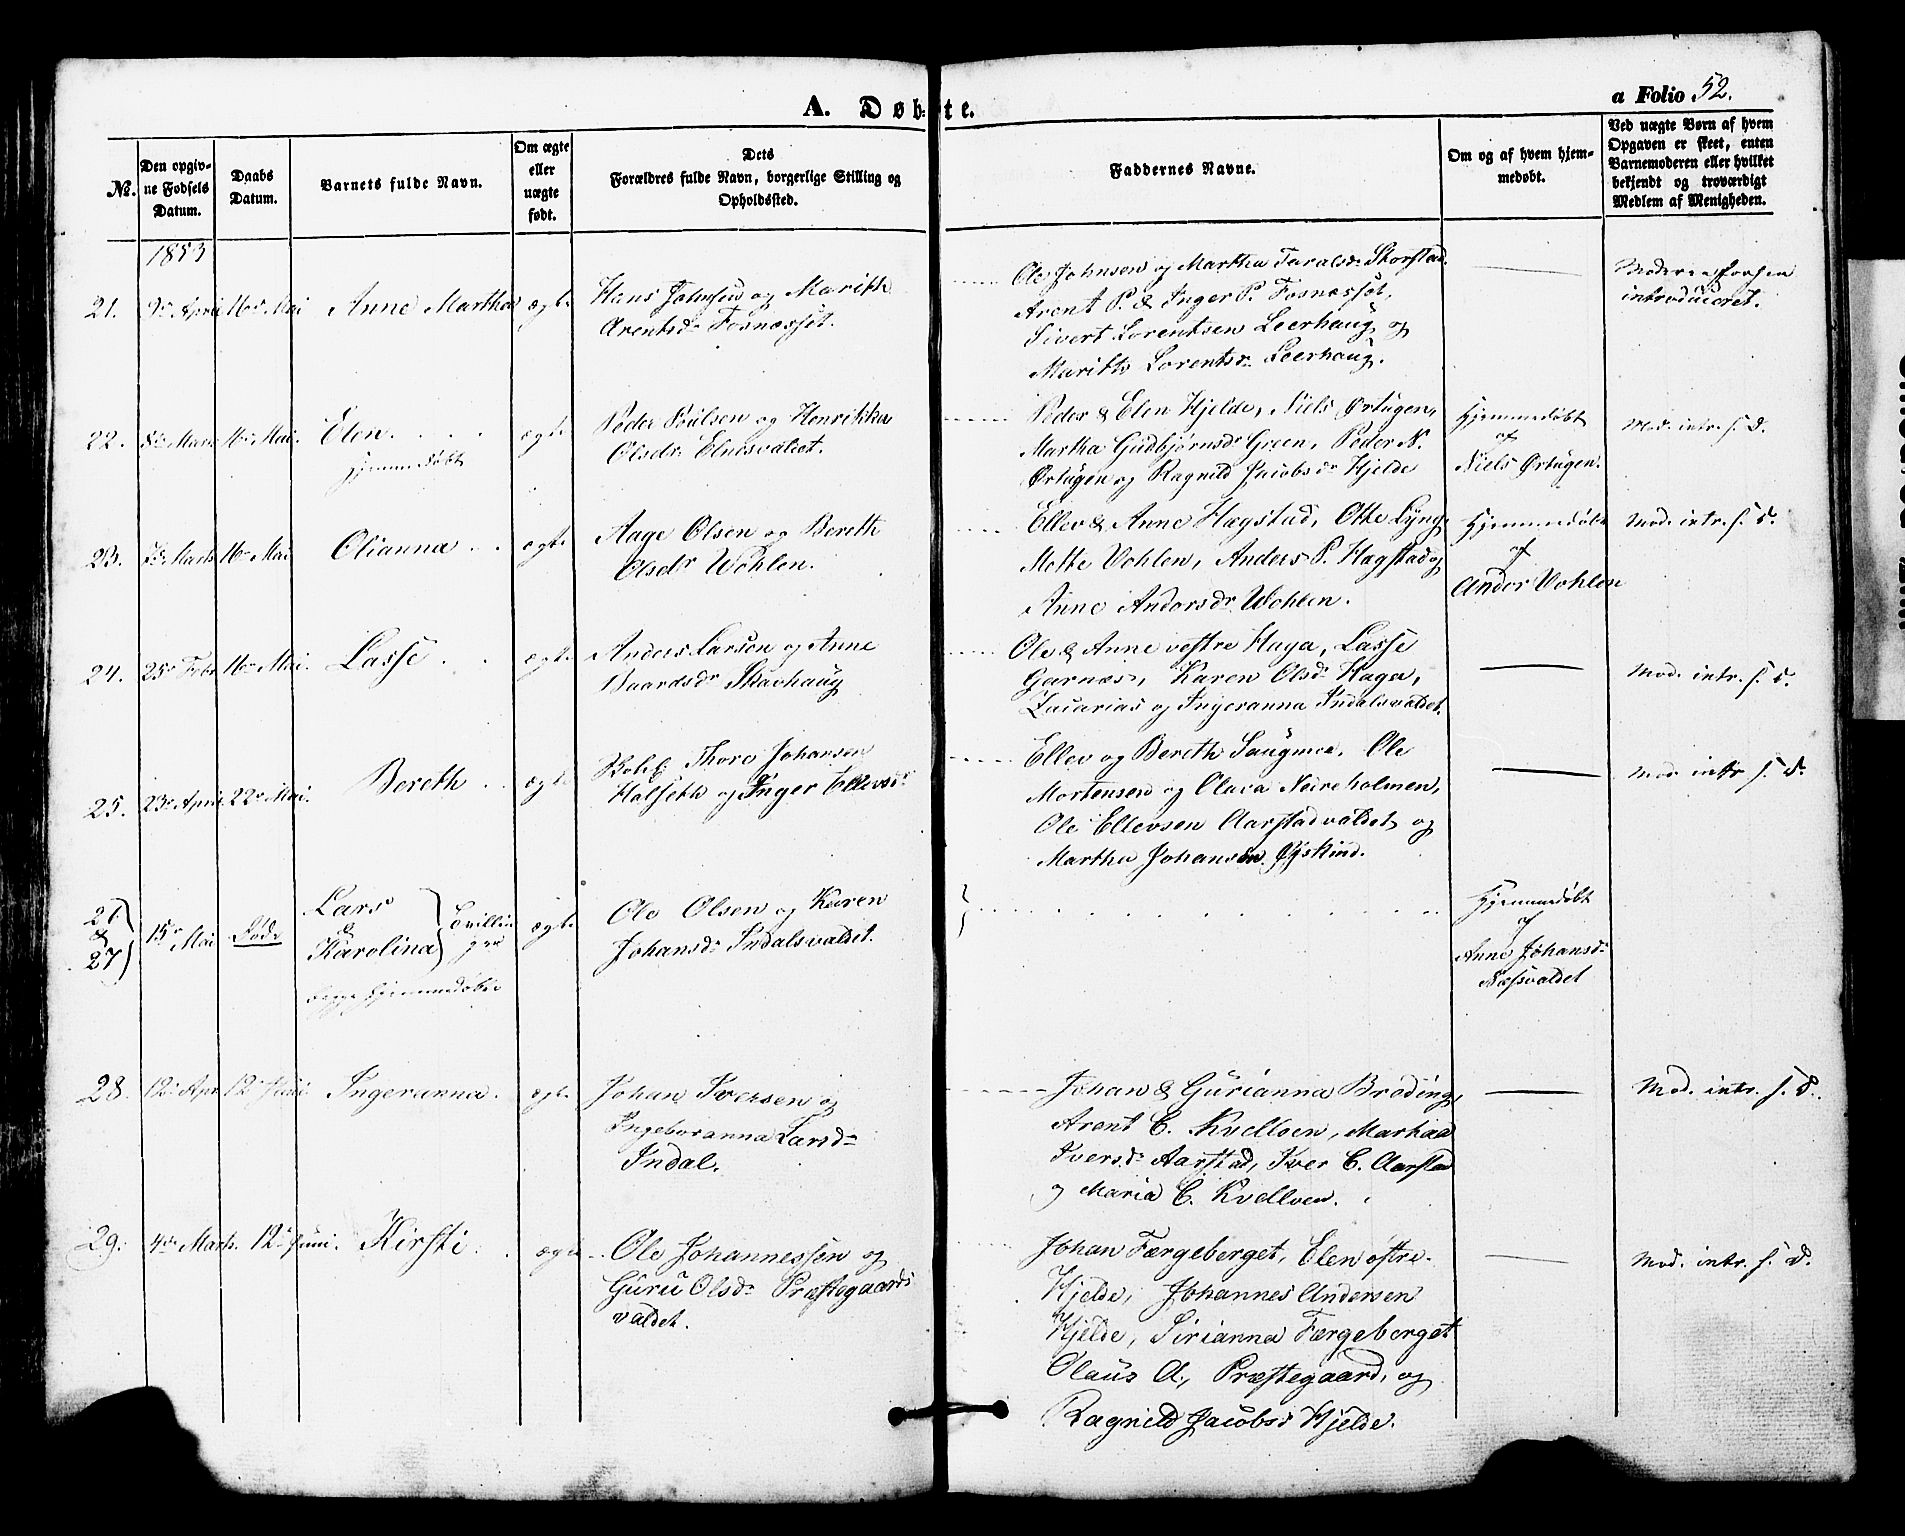 A. Døbte.
a Folio 52.
No.
Den opgivne Fødsels Datum.
Daabs Datum.
Barnets fulde Navn.
Om ægte eller uægte født.
Dets Forældres fulde Navn, borgerlige Stilling og Opholdssted.
Faddernes Navne.
Om og af hvem hjemmedøbt.
Ved uægte Børn af hvem Opgaven er skeet, enten Barnemoderen eller hvilket bekjendt og troværdigt Medlem af Menigheden.
1853
21. 9de April 16de Mai Anne Martha ægte
Hans Johnsen og Marith
Arentsdr Fosnæsset.
Ole Johnsen og Martha Taralsdr Storstad.
Arent P. & Inger P. Fosnæsset,
Sivert Lorentsen Leerhaug og
Marith Lorentsdr Leerhaug.
introduceret.
22. 8de Marts 16de Mai. Elen.
hjemmedøbt
ægte
Peder Poulsen og Henrikka
Olsdr Elnesvaldet.
Peder & Elen Hjelde, Niels Ørtugen,
Martha Gudbjørnsdr Green, Peder N.
Ørtugen og Ragnild Jacobsdr Hjelde
Hjemmedøbt
af
Niels Ørtugen.
Mod. intr. s. d.
23. 7de Marts 16de Mai Olianna ægte
Aage Olsen og Bereth
Olsdr Wohlen.
Ellev & Anne Hægstad, Otte Lyng,
Mette Vohlen, Anders P. Hagstad og
Anne Andorsdr Wohlen.
Hjemmedøbt
af
Andor Vohlen
Mod. intr. s. d.
24. 25de Febr 16de Mai. Lasse ægte
Anders Larsen og Anne
Baardsdr Skavhaug
Ole & Anne vestre Haga, Lasse
Garnæs, Karen Olsdr Haga,
Zacarias og Ingeranna Indalsvaldet.
Mod. intr. s. d.
25. 23de April 22de Mai. Bereth ægte
Thore Johansen
Halseth og Inger Ellevsdr
Ellev og Bereth Saugmoe, Ole
Mortensen og Olava Nedreholmen,
Ole Ellevsen Aarstadvaldet og
Martha Johansen Øskind.
Mod. intr. s. d.
26
&
27
15de Mai
Død
Lars
&
Karolina
Tvillinger
begge hjemmedøbte
ægte
Ole Olsen og Karen
Johansdr Indalsvaldet.
Hjemmedøbt
af
Anne Johansdr
Næssvaldet
28. 12te Apr 12te Juni Ingeranna. ægte
Johan Iversen og
Ingeboranna Larsdr
Indal.
Johan & Gurianna Brøding,
Arent C. Kvelloen,
Iversdr Aarstad, Iver C. Aarstad
og Maria C. Kvelloen.
Mod. intr. s. d.
29. 4de Marts. 12te Juni. Kirsti ægte
Ole Johannessen og
Guru Olsdr Præstegaards
valdet.
Johan Færgeberget, Elen østre
Hjelde, Johannes Andersen
Hjelde, Sirianna Færgeberget
Olaus A. Præstegaard, og
Ragnild Jacobsdr Hjelde.
Mod. intr. s. d.